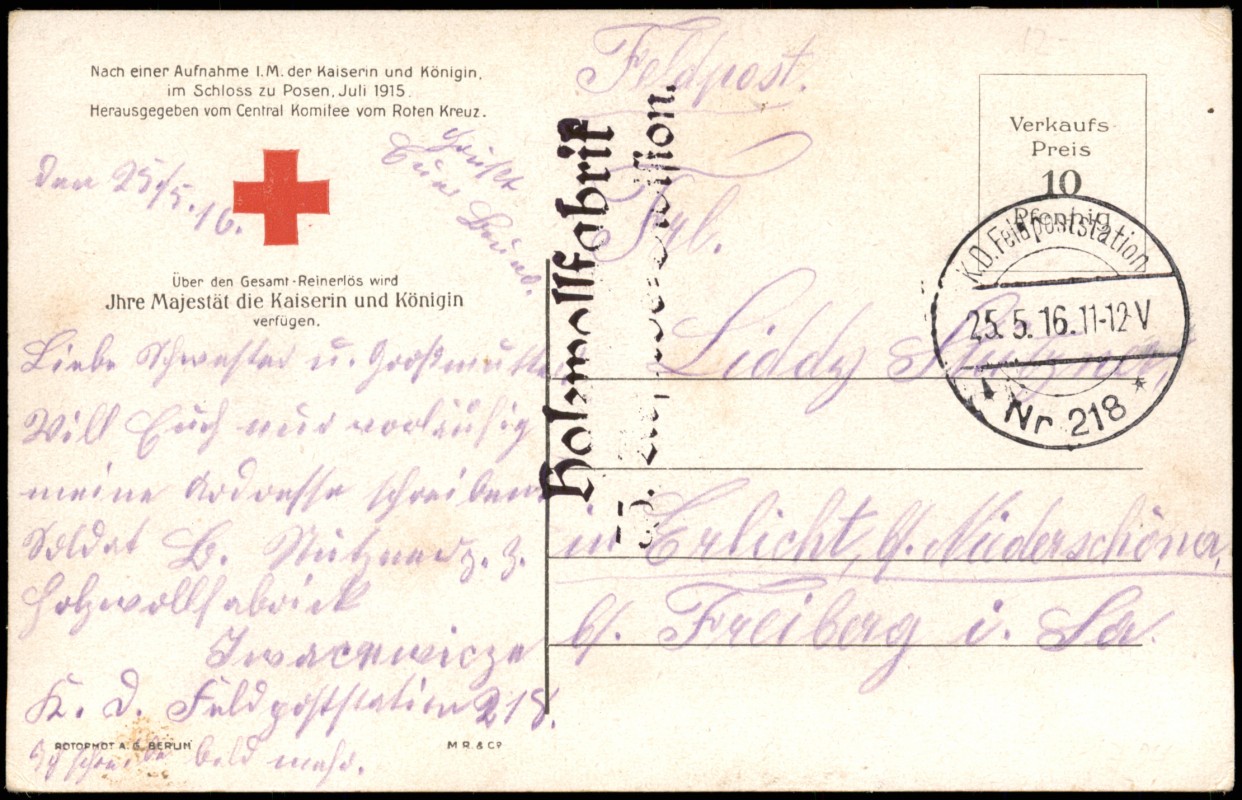 Nach einer Aufnahme I.M. der Kaiserin und Königin,
im Schloss zu Posen, Juli 1915.
Herausgegeben vom Central Komitee vom Roten Kreuz.
den 25/5. 16.
Grüßt
Euer Bruno.
Über den Gesamt-Reinerlös wird
Jhre Majestät die Kaiserin und Königin
verfügen.
Liebe Schwester u. Großmutter
Will Euch nur vorläufig
meine Addresse schreiben
Soldat B. Stützner z. Z.
Holzwollfabrick
Iwacewicze
K. D. Feldpoststation 218.
Ich schreibe bald mehr.
ROTOPHOT A.G. BERLIN
M R. & Cº
Feldpost.
Holzwollfabrik
Frl.
Liddy Stützner
in Erlicht, b/. Niederschöna,
b/. Freiberg i. Sa.
Verkaufs-
Preis
10
Pfennig
K.D. Feldpoststation
25. 5. 16. 11-12 V
Nr 218 *